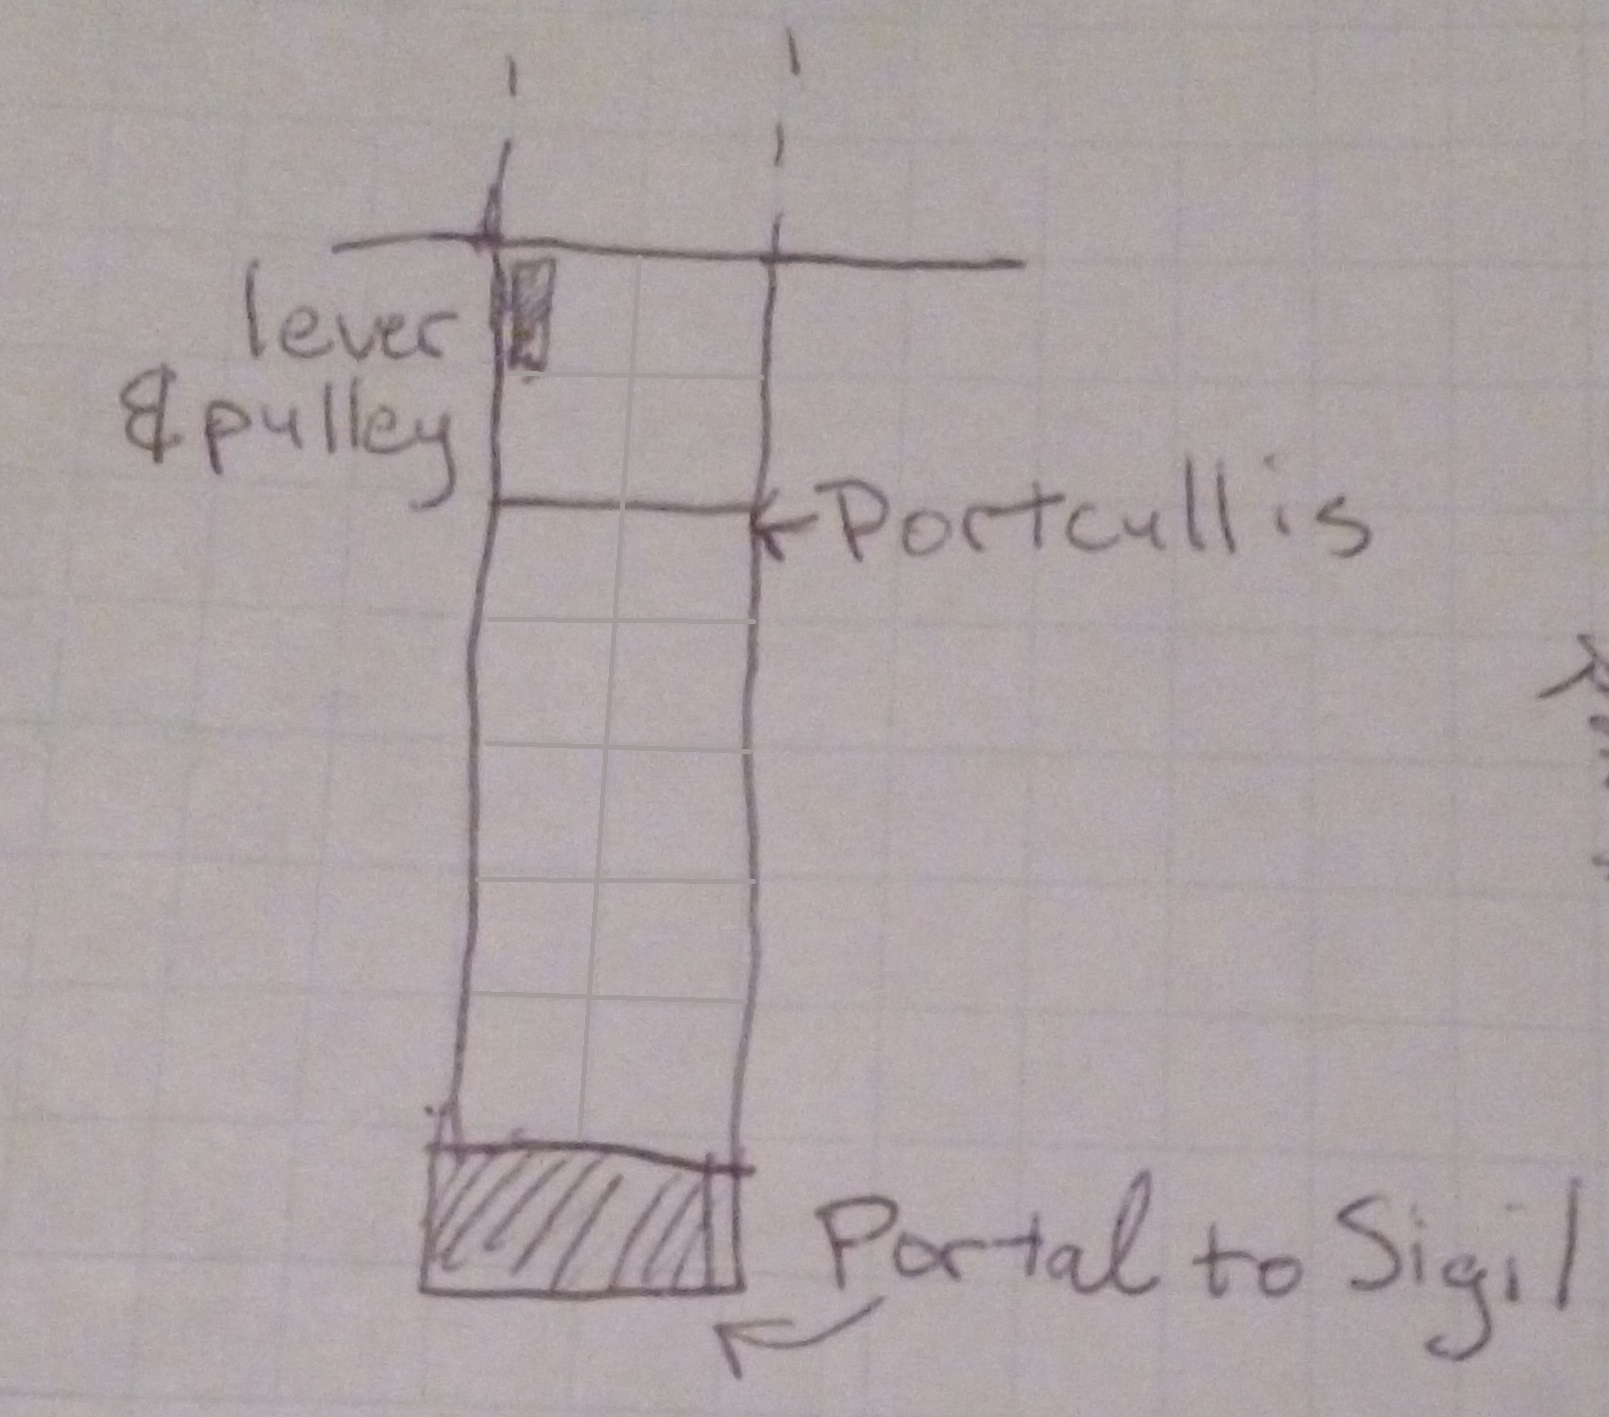 lever
& pulley
Portcullis
Portal to Sigil